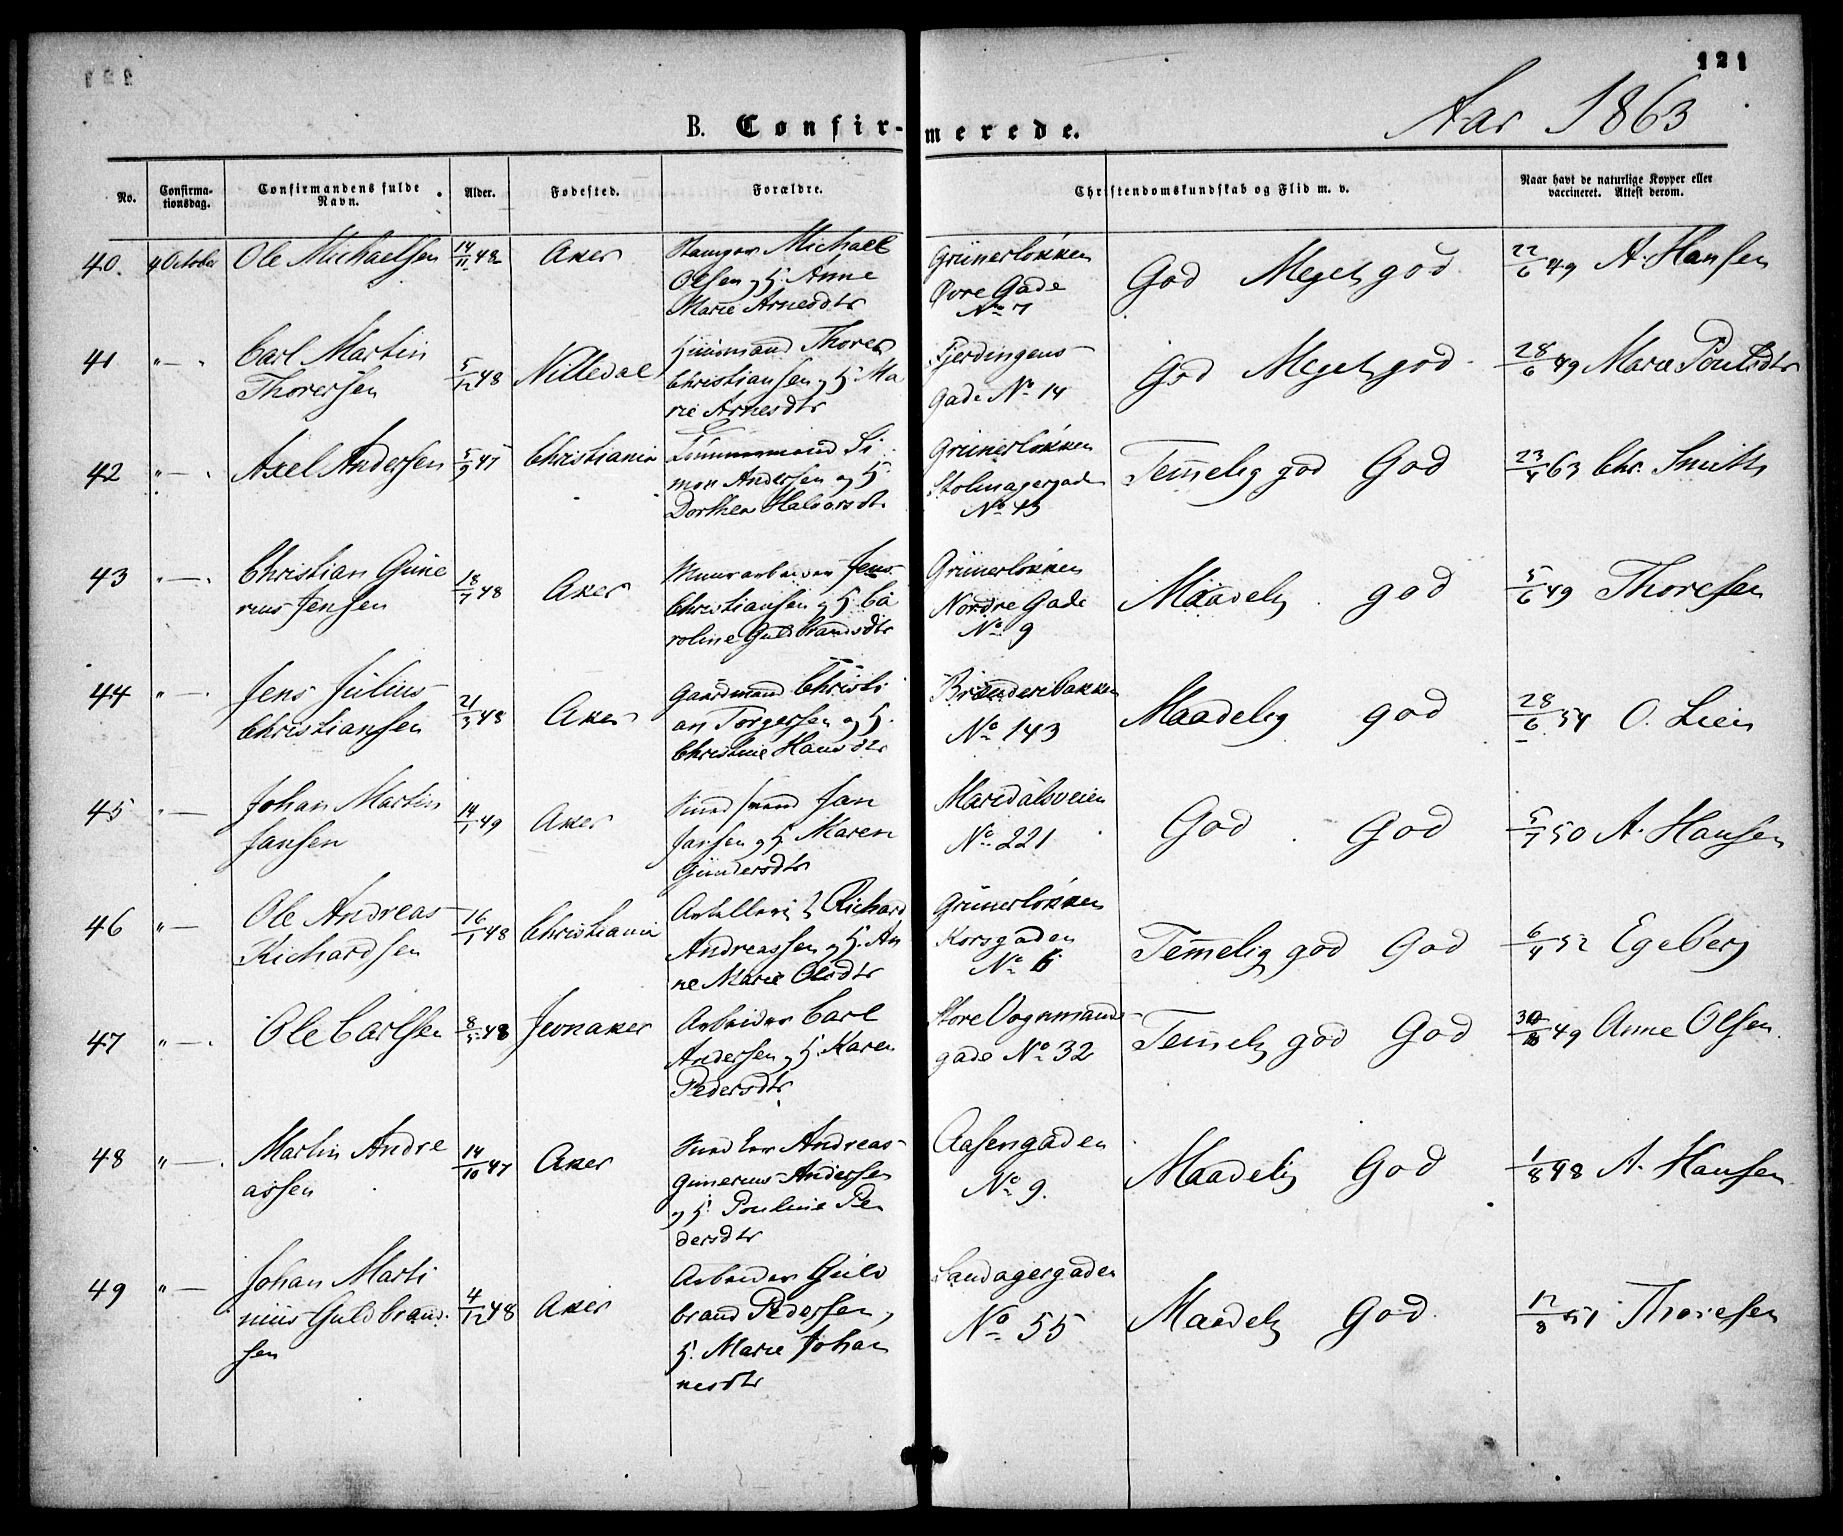 121
B. Confir-merede.
Aar 1863
No.
Confirma-
tionsdag.
Confirmandens fulde
Navn.
Alder.
Fødested.
Forældre.
Christendomskundskab og Flid m. v.
Naar havt de naturlige Kopper eller
vaccineret. Attest derom.
40. 4 October Ole Michaelsen 14/11 48 Aker
Michael
Olsen og H. Anne
Marie Arnesdtr
Grünerløkken
Øvre Gade
No 7
God Meget god 22/6 49 A. Hansen
41 " — " Carl Martin
Thoresen
5/12 48 Nittedal
Huusmand Thorer
Christiansen og H. Ma
rie Arnesdtr
Fjerdingens-
Gade No 14
God Meget god 28/6 49 Marie Poulsdtr
42 " — " Axel Andersen 5/9 47 Christiania
Si
mon Andersen og H.
Dorthea Halvorsdtr
Grünerløkken
No 43
Temmelig god God 23/4 63 Chr. Smith
43 " — " Christian Gune
rius Jensen
18/7 48 Aker
Muurarbeider Jens
Christiansen og H. Ca
roline Guldbrandsdtr
Grünerløkken
Nordre Gade
No 9
Maadelig god 5/6 49 Thoresen
44 " — " Jens Julius
Christiansen
21/3 48 Aker
Gaardmand Christi
an Torgersen og H.
Christine Hansdtr
Brænderibakken
No 143
Maadelig god 28/6 54 O. Lien
45 " — Johan Martin
Jansen
14/1 49 Aker
Jan
Jansen og H. Maren
Gundersdtr
Maridalsveien
No 221
God God 5/7 50 A. Hansen
46 " — Ole Andreas
Richardsen
16/1 48 Christiania
Richard
Andreassen og H. An
ne Marie Olsdtr
Grünerløkken
Korsgaden
No 6
Temmelig god God 6/4 52 Egeberg
47 " — " Ole Carlsen 8/5 48 Jevnaker
Arbeider Carl
Andersen og H. Karen
Pedersdtr
Store Vognmands-
gade No 32
Temmelig god God 49 Anne Olsen
48 " — " Martin Andre
assen
14/10 47 Aker
Andreas
Gunerius Andersen
og H. Pouline Pe
dersdtr
Aasengaden
No 9.
Maadelig God 1/8 48 A. Hansen
49 " — Johan Marti
nius Guldbrand-
sen
4/12 48 Aker
Arbeider Guld
brand Pedersen,
H. Marie Johan
nesdtr
Sandagergaden
No 55
Maadelig God 12/8 51 Thoresen